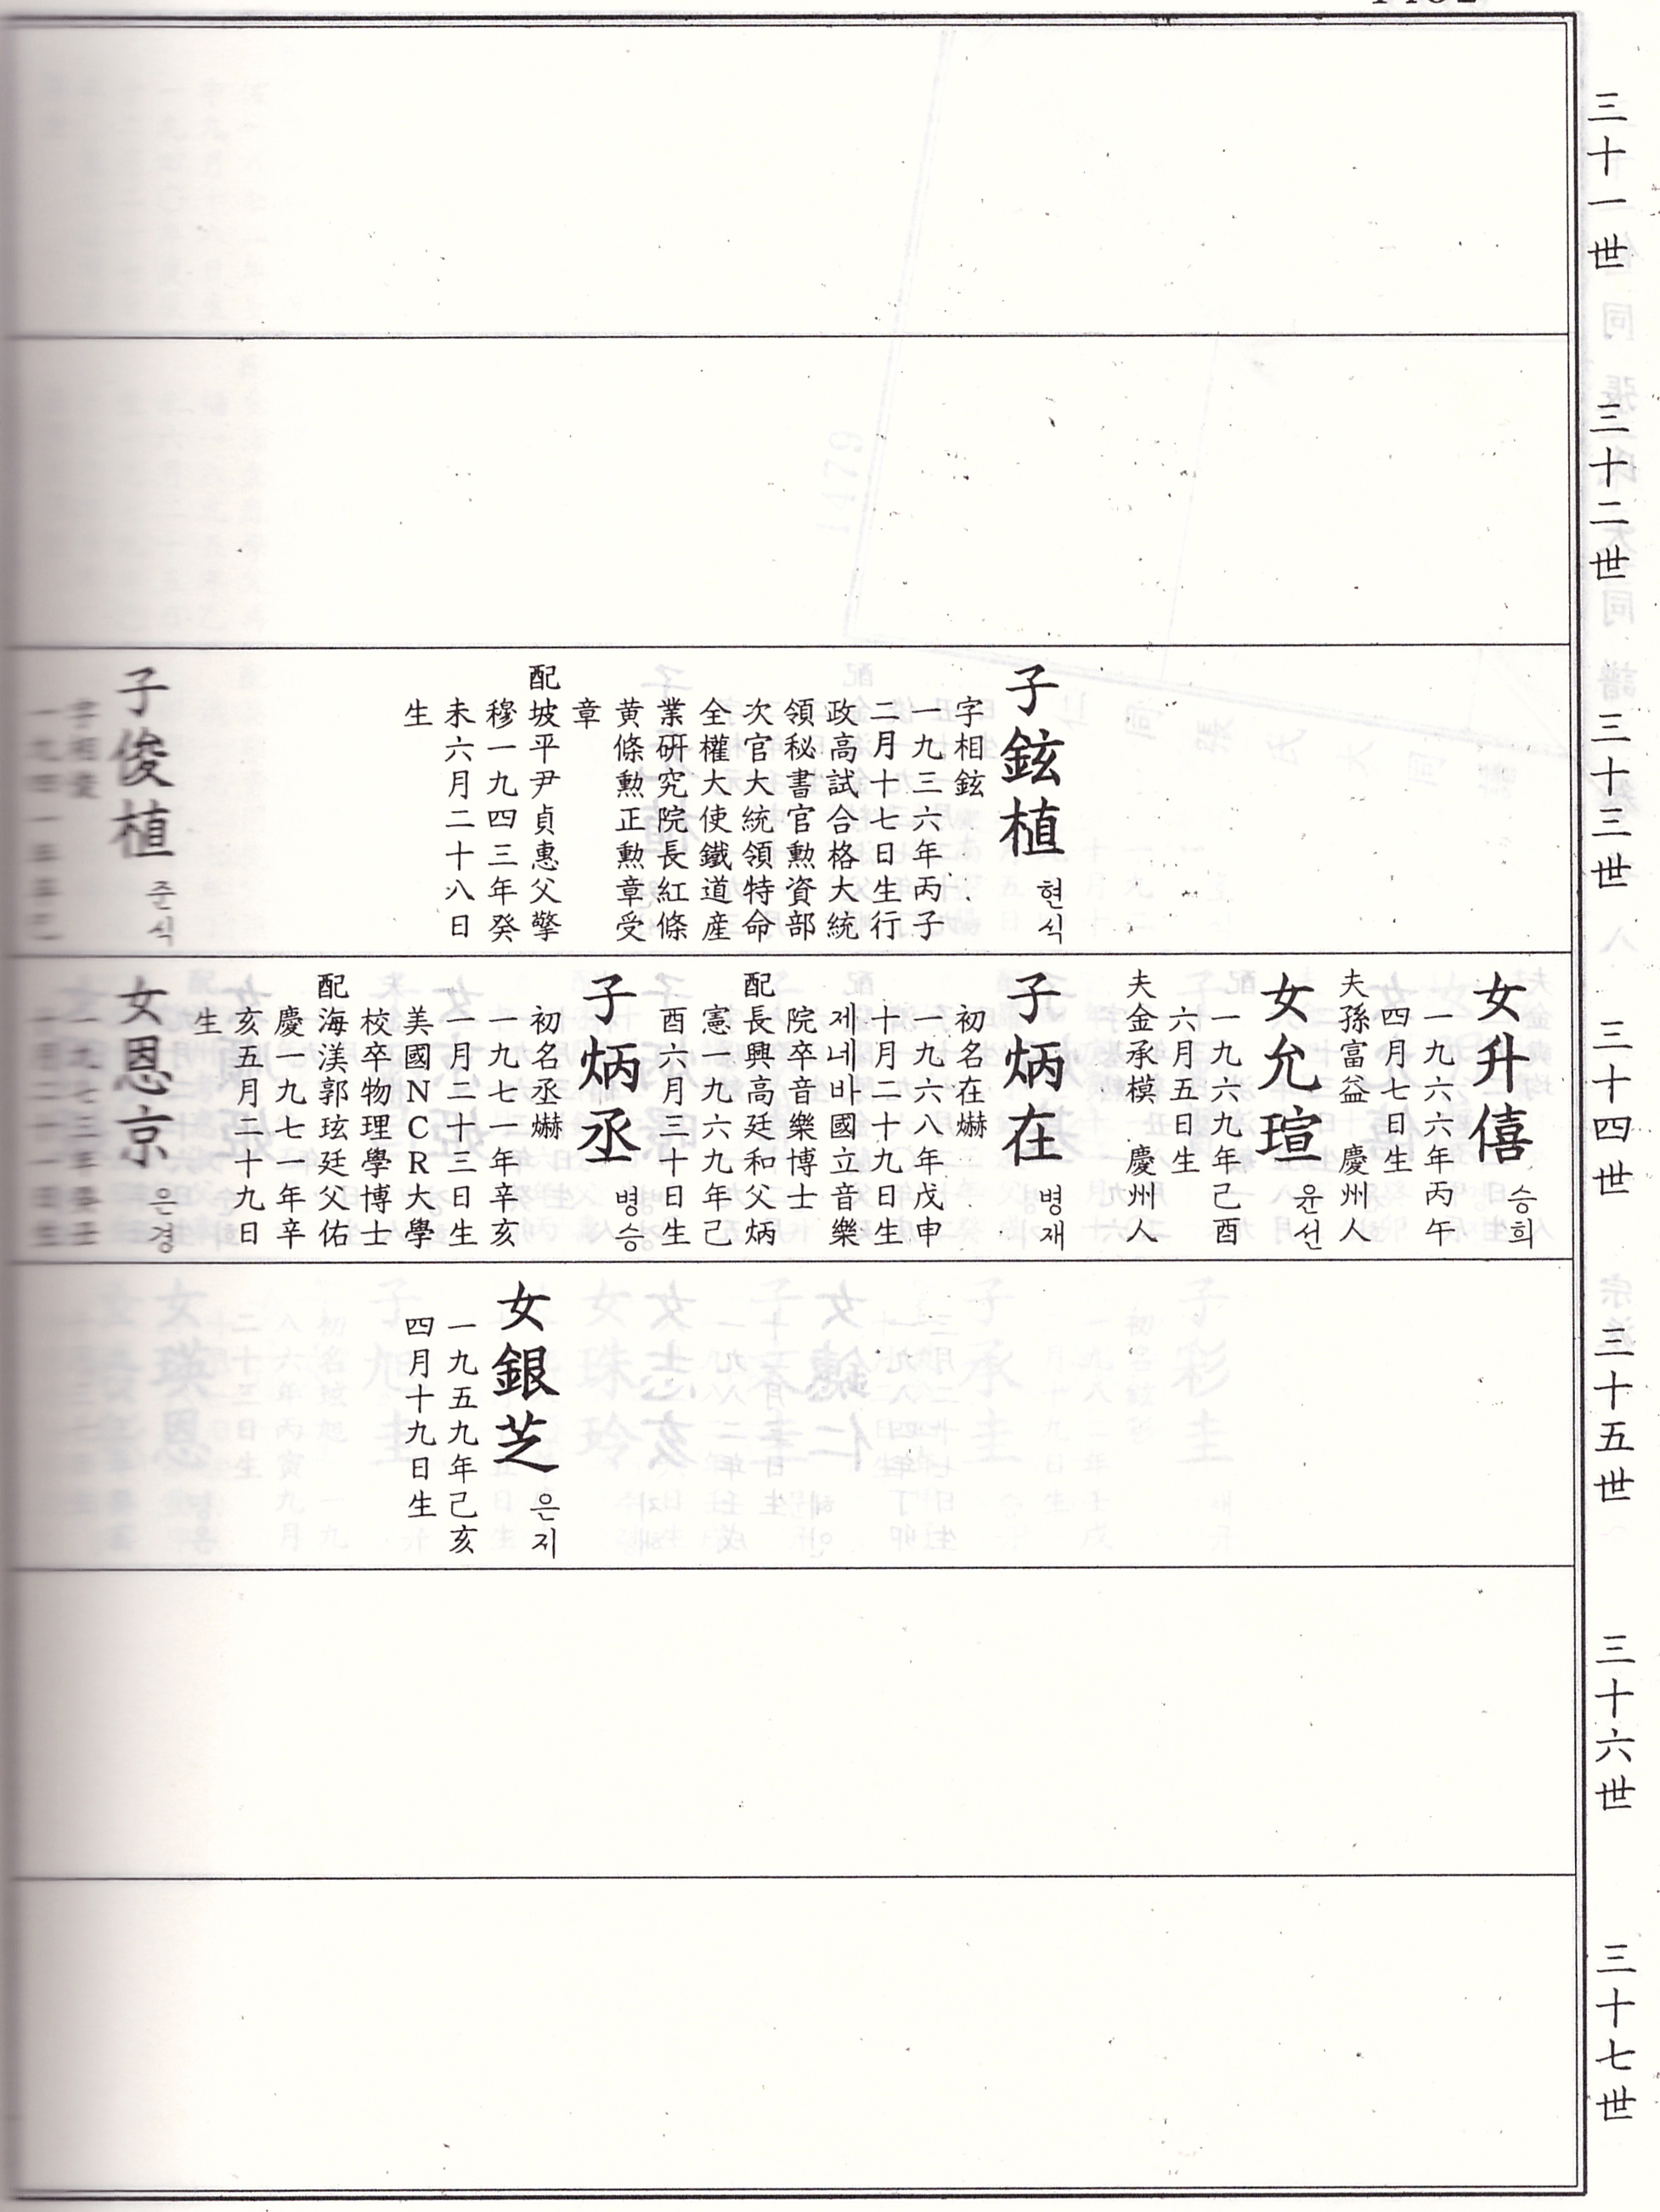 三十一世
三十二世
三十三世
三十四世
三十五世
三十六世
三十七世
子鉉植 현식
字相鉉
一九三六年丙子
二月十七日生行
政高試合格大統
領秘書官勲資部
次官大統領特命
全權大使鐵道産
業研究院長紅條
黄條勲正勲章受
章
配坡平尹貞惠父擎
穆一九四三年癸
未六月二十八日
生
子俊植 준식
字相
一九四一年辛巳
女升僖 승희
一九六六年丙午
四月七日生
夫孫富益 慶州人
女允瑄 윤선
一九六九年己酉
六月五日生
夫金承模 慶州人
子炳在 병재
初名在爀
一九六八年戊申
十月二十九日生
제네바國立音樂
院卒音樂博士
配長興高廷和父炳
憲一九六九年己
酉六月三十日生
子炳丞 병승
初名丞爀
一九七一年辛亥
一月二十三日生
美國NCR大學
校卒物理學博士
配海渼郭玹廷父佑
慶一九七一年辛
亥五月二十九日
生
女恩京 은경
一九七三年
十月二十一日生
女銀芝 은지
一九五九年己亥
四月十九日生